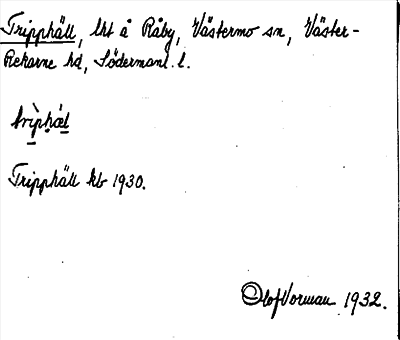 Tripphäll, lht å Råby, Västermo sn, Väster-
Rekarne hd, Södermanl. l.
trìphǽl
Tripphäll kb 1930.
Olof Vorman 1932.